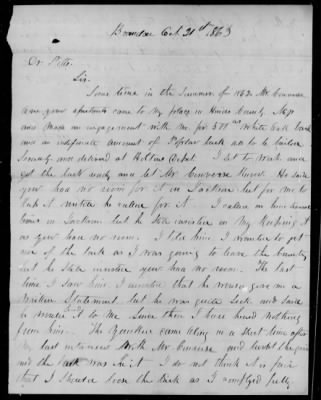 Brandon Oct. 21st 1863
Dr. Potts
Sir.
Some time in the Summer of 1862 Mr. Converse
came your apartments came to my place in Hinds County Miss
and made an engagement with me for 500 lbs White Oak bark
and an indefinite amount of Poplar bark all to be boiled
and delivered at Boltons Depot. I set to work and
got the bark ready and let Mr Converse know. He said
you had no room for it in Jackson but for me to
keep it until he called for it. I called on him several
times in Jackson but he still insisted on My Keeping it
as you had no room. I told him I wanted to get
rid of the bark as I was going to leave the Country
but he still insisted you had no room. The last
time I saw him I insisted that he would give me a
written Statement but he was quite Sick and said
he would it to me Since then I have heard nothing
from him. The Yankees came along in a short time after
my last interview with Mr Converse and
and the bark was I do not think it is fair
that I should loose the Bark as I complyed fully